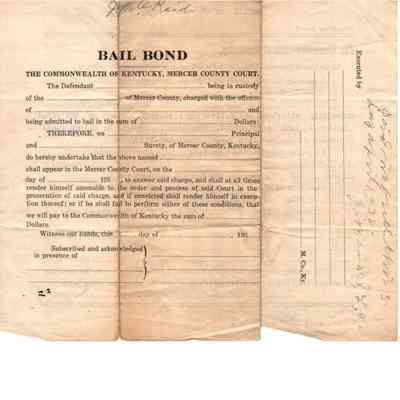 Reid
BAIL BOND
THE COMMONWEALTH OF KENTUCKY, MERCER COUNTY COURT.
The Defendant being in custody
of the of Mercer County, charged with the offense
of and
being admitted to bail in the sum of Dollars:
THEREFORE, we Principal
and Surety, of Mercer County, Kentucky,
do hereby undertake that the above named
shall appear in the Mercer County Court, on the
day of 193 , to answer said charge, and shall at all times
render himself amenable to the order and process of said Court in the
prosecution of said charge, and if convicted shall render himself in execu-
tion thereof; or if he shall fail to perform either of these conditions, that
we will pay to the Commonwealth of Kentucky the sum of
Dollars.
Witness our hands, this day of , 193
Subscribed and acknowledged
in presence of
Executed by
M. Co. Ky.